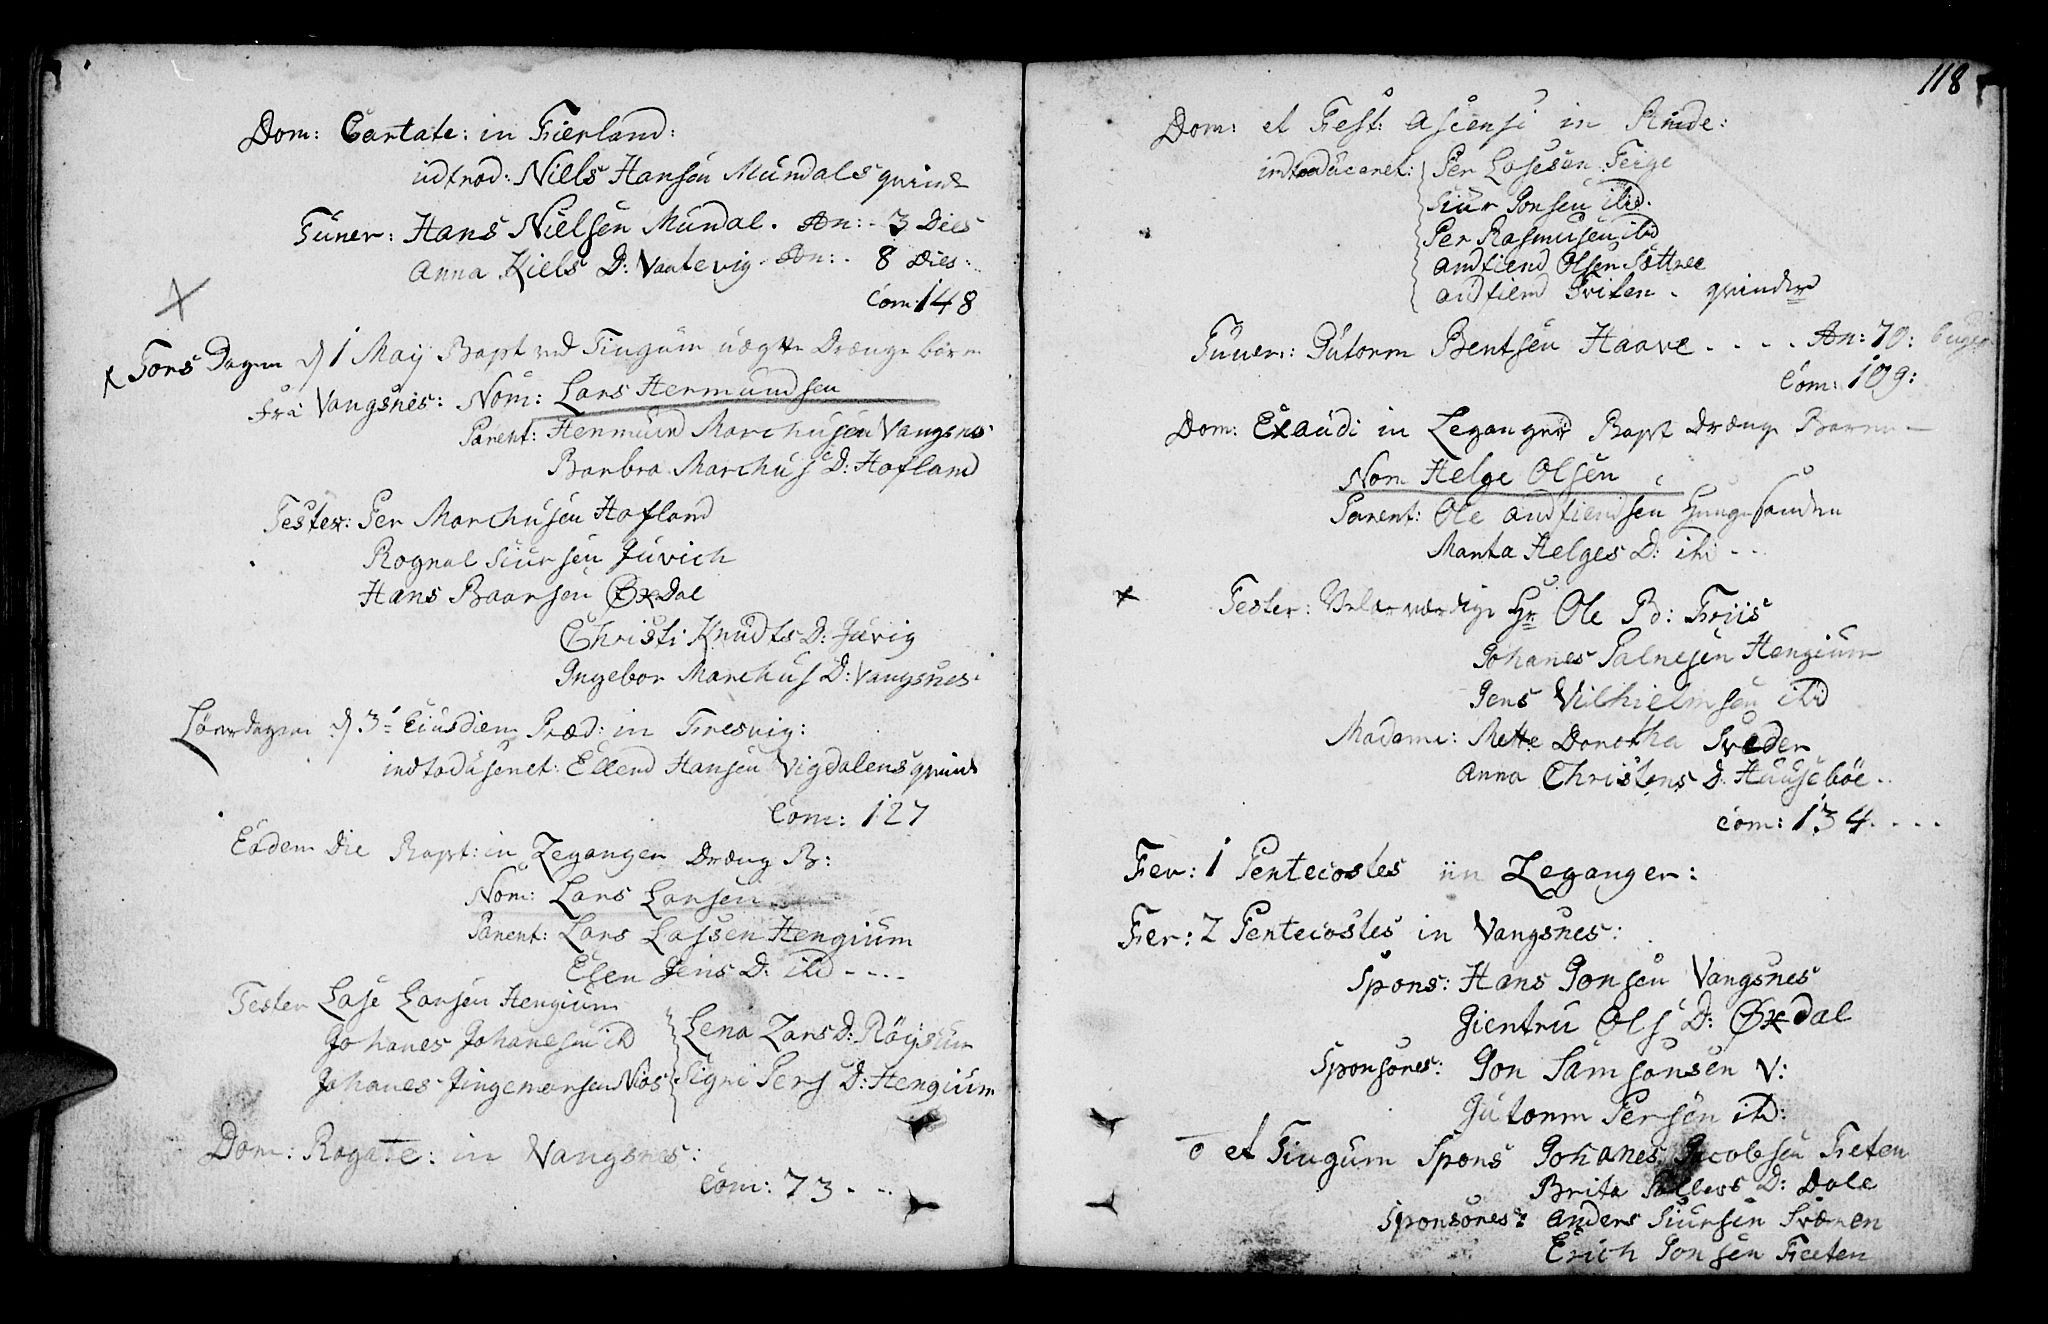 Dom: Cantate: in Fierland:
indtrod: Niels Hansen Mundals qvinde
Funer: Hans Nielsen Mundal. An: - 3 Dies
Anna Kiels D: Vaatevig - An: - 8 Dies:
Com: 148
Fors Dagen d 1 May Bapt ved Tingum uægte Drænge børn
fra Vangsnes: Nom: Lars Hermundsen
Parent: Hermund Marchusen Vangsnes
Barbra Marchus D: Hofland
Tester: Per Marchusen Hofland
Rognal Siursen Juvich
Hans Baarsen Øxdal
Christi Knudts D: Juvig
Ingebor Marchus D: Vangsnes.
Løverdagen d 3 Eiusdiem Præd: in Fresvig:
indtoduseret: Ellend Hansen Vigdalens qvinde
Com: 127
Eodem Die Bapt: in Leganger Dræng B:
Nom: Lars Larsen
Parent: Lars Lassen Hengium
Elen Jens D: ibd ....
Tester Lase Larsen Hengium
Johanes Johanesen ibd
Johanes Jingemorsen Nios
Lena Lars D: Röysum
Sigri Pers D: Hengium
Dom: Rogate: in Vangsnes:
Com: 73 - - -
118
Dom: et Fest: Asiensi in Rinde:
indtoduceret: Per Lasesen Feige
Siur Jonsen ibd.
Per Rasmusen ibd
Andfiend Olsen Sættree
Andfiend Tviten - qvinder
Funer: Gutorm Bentsen Haave - - - - An: 70:
Com: 109:
Dom: Exaudi in Leganger Bapt Drænge Barn -
Nom Helge Olsen
Parent: Ole Andfiendsen Hungesanden
Marita Helges D: ibd - -
Tester: Velærværdige Hr Ole Bd: Friis
Johanes Palnesen Hengium
Jens Vilhielmsen ibd
Madame: Mette Dorotha Sveder
Anna Christens D: Huusebøe.
Com: 134. - - -
Fer: 1 Pentecostes in Leganger:
Fer: 2 Pentecostes in Vangsnes:
Spons: Hans Jonsen Vangsnes
Gientru Ols D: Øxdal
Sponsores: Jon Samsonsen V:
Gutorm Persen ibd:
et Tingum Spons Johanes Jacobsen Feten
Brita Sallers D: Dale
Sponsores: Anders Siursen Sværen
Erich Jonsen Feeten